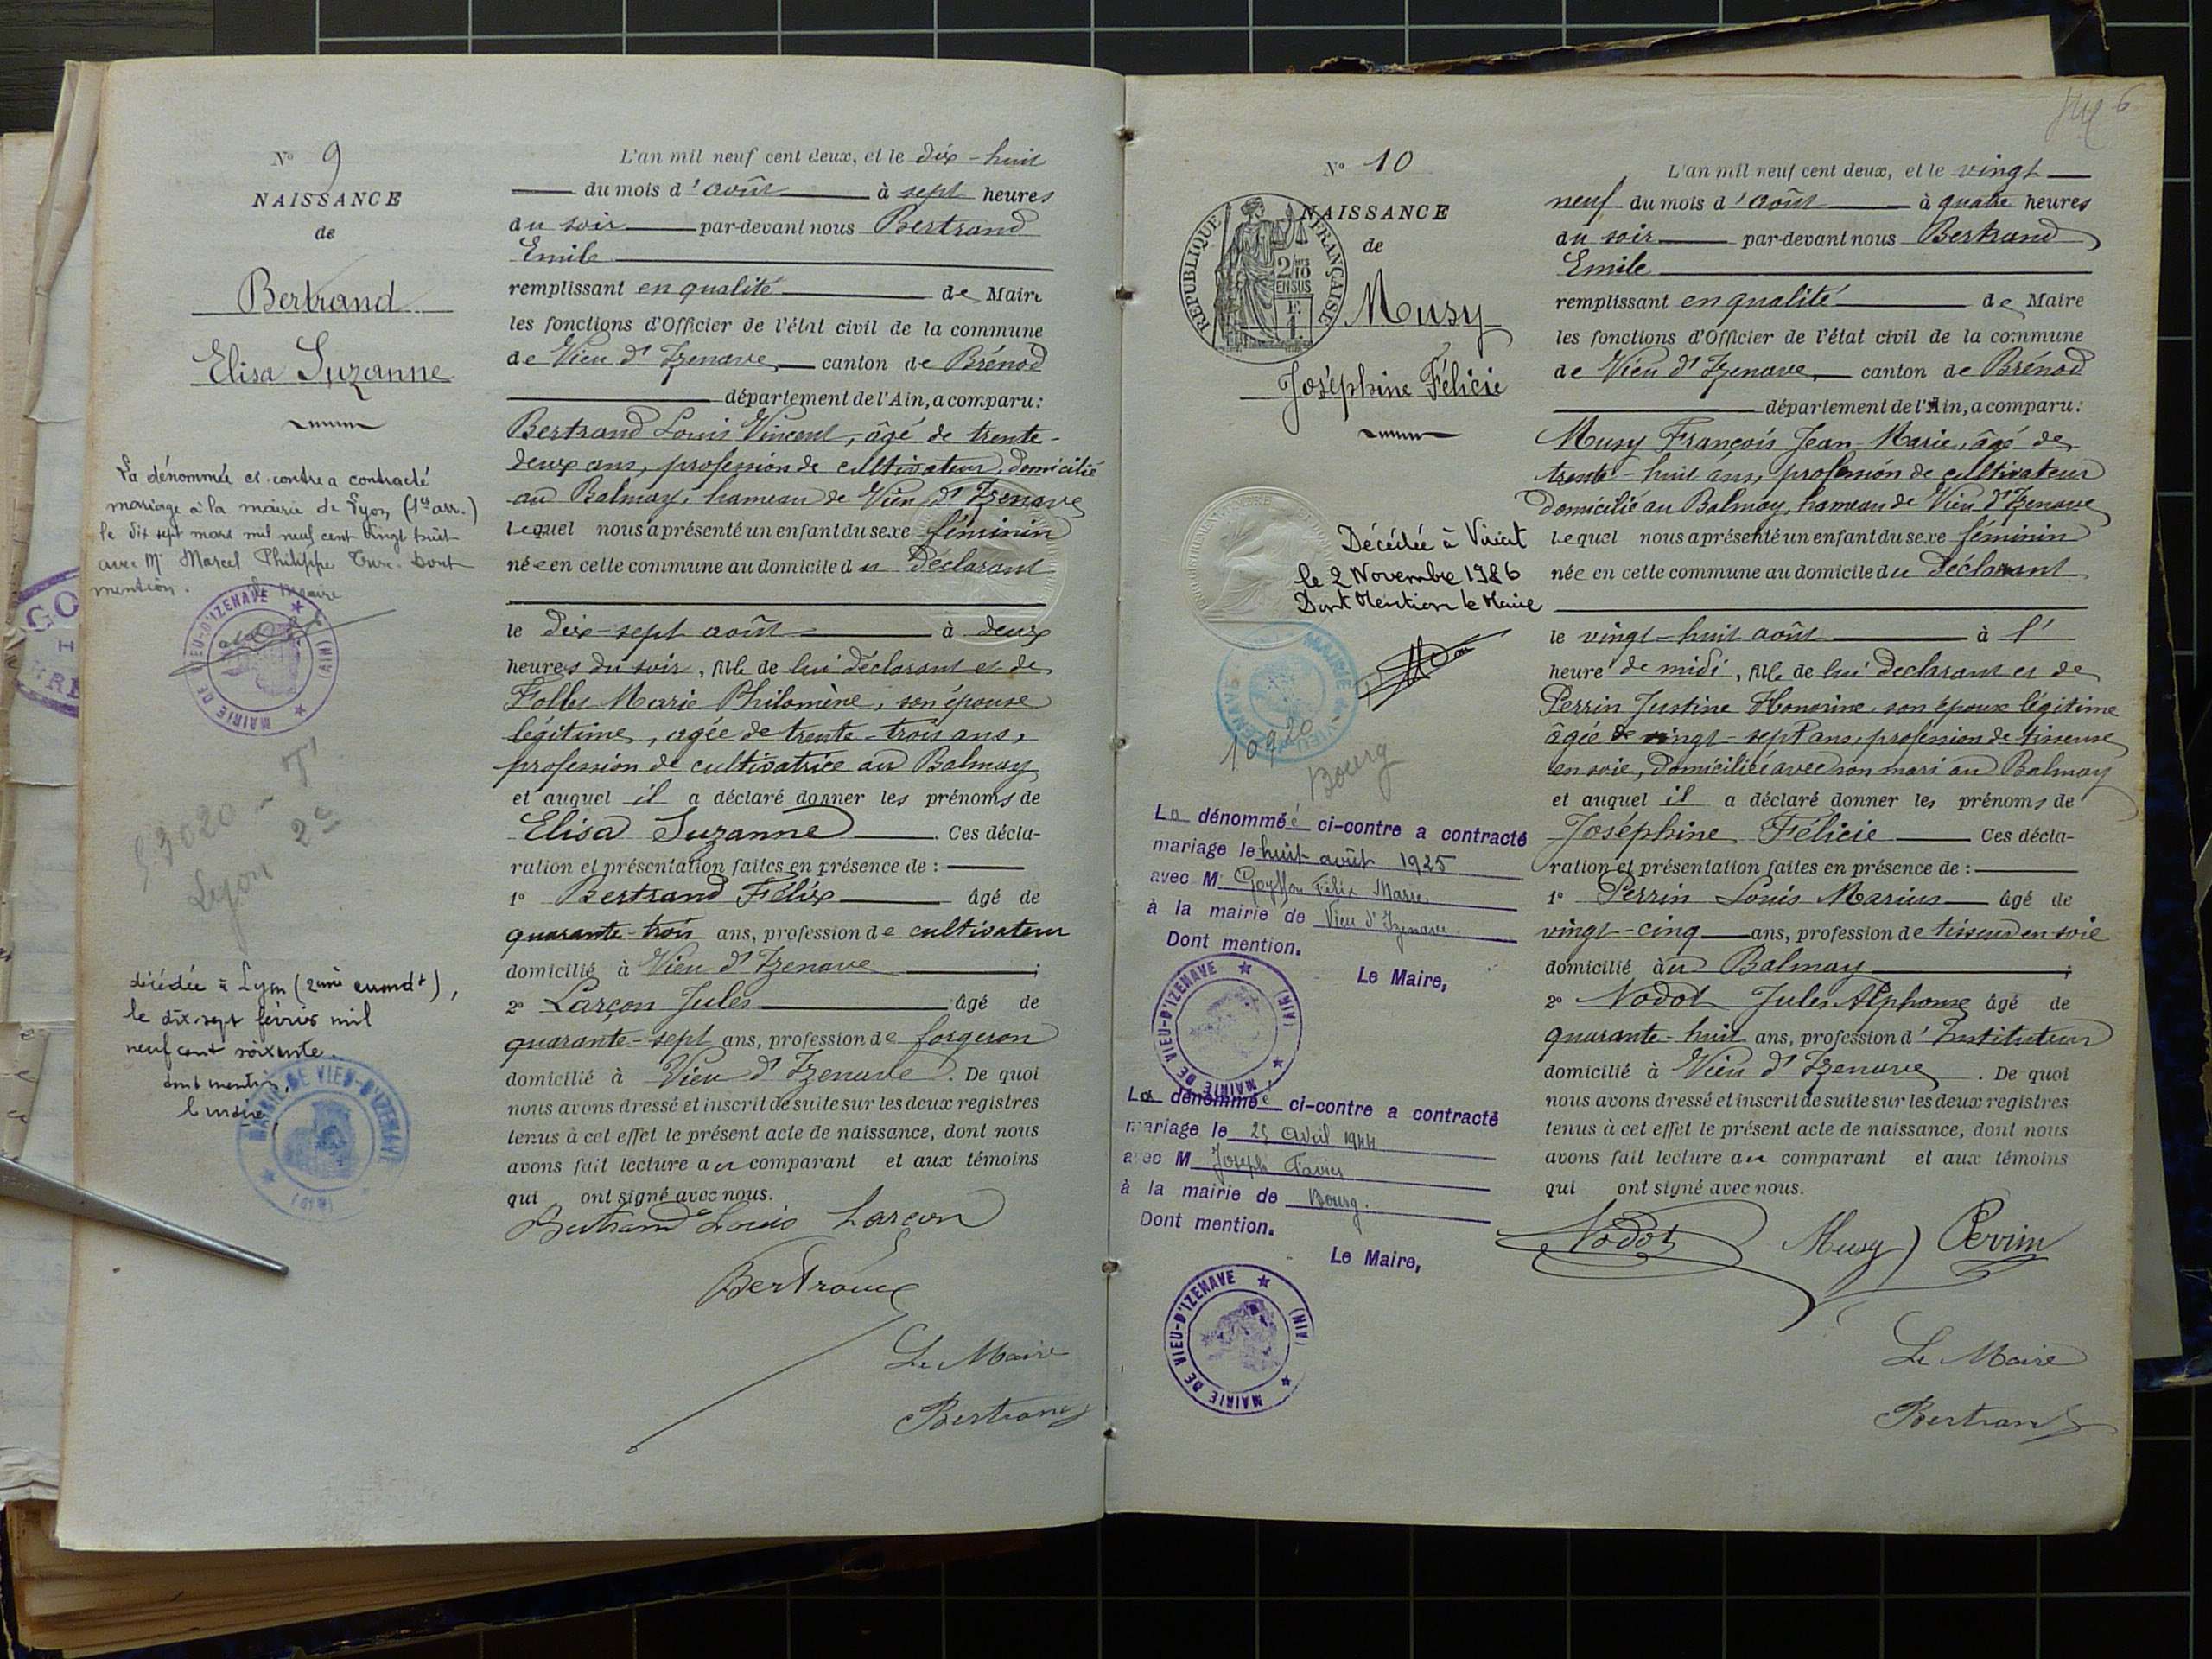 N° 9
NAISSANCE
de
Bertrand
Elisa Suzanne
La dénommée ci-contre a contracté
mariage à la mairie de Lyon (1er arr.)
le dix sept mars mil neuf cent vingt huit
avec Mr Marcel Philippe Turc. Dont
mention. Le Maire
MAIRIE DE VIEU-D'IZENAVE (AIN)
53020 - T1
Lyon 2e
décédée à Lyon (2ème arrondt),
le dix-sept février mil
neuf cent soixante.
dont mention.
le maire
MAIRIE DE VIEU-D'IZENAVE (AIN)
L'an mil neuf cent deux, et le dix-huit
du mois d'août à sept heures
du soir par-devant nous Bertrand
Emile
remplissant en qualité de Maire
les fonctions d'Officier de l'état civil de la commune
de Vieu d'Izenave, canton de Brénod
département de l'Ain, a comparu:
Bertrand Louis Vincent, âgé de trente-
deux ans, profession de cultivateur, domicilié
au Balmay, hameau de Vieu d'Izenave
lequel nous a présenté un enfant du sexe féminin
née en cette commune au domicile du déclarant
le dix-sept août à deux
heures du soir, fille de lui déclarant et de
Marie Philomène, son épouse
légitime, agée de trente-trois ans,
profession de cultivatrice au Balmay
et auquel il a déclaré donner les prénoms de
Elisa Suzanne. Ces décla-
ration et présentation faites en présence de :
1° Bertrand Félix âgé de
quarante-trois ans, profession de cultivateur
domicilié à Vieu d'Izenave ;
2° Larçon Jules âgé de
quarante-sept ans, profession de forgeron
domicilié à Vieu d'Izenave. De quoi
nous avons dressé et inscrit de suite sur les deux registres
tenus à cet effet le présent acte de naissance, dont nous
avons fait lecture au comparant et aux témoins
qui ont signé avec nous.
Bertrand Louis Larçon
Bertrand
Le Maire
Bertrand
6
N° 10
NAISSANCE
de
REPUBLIQUE FRANÇAISE
2/10 EN SUS
Musy
Joséphine Félicie
Décédée à Viriat
le 2 Novembre 1986
Dont Mention le Maire
MAIRIE de VIEU D'IZENAVE
10920
Bourg
La dénommée ci-contre a contracté
mariage le huit août 1925
avec M Goyffon Félix Marie
à la mairie de Vieu d'Izenave.
Dont mention.
Le Maire,
MAIRIE DE VIEU-D'IZENAVE (AIN)
La dénommée ci-contre a contracté
mariage le 25 Avril 1944
avec M Joseph Favier
à la mairie de Bourg.
Dont mention.
Le Maire,
MAIRIE DE VIEU-D'IZENAVE (AIN)
L'an mil neuf cent deux, et le vingt
neuf du mois d'août à quatre heures
du soir par-devant nous Bertrand
Emile
remplissant en qualité de Maire
les fonctions d'Officier de l'état civil de la commune
de Vieu d'Izenave, canton de Brénod
département de l'Ain, a comparu:
Musy François Jean-Marie, âgé de
trente-huit ans, profession de cultivateur
domicilié au Balmay, hameau de Vieu d'Izenave
lequel nous a présenté un enfant du sexe féminin
née en cette commune au domicile du déclarant
le vingt-huit août à l'
heure de midi, fille de lui déclarant et de
Perrin Justine Honorine, son épouse légitime
âgée de vingt-sept ans, profession de tisseuse
en soie, domiciliée avec son mari au Balmay
et auquel il a déclaré donner les prénoms de
Joséphine Félicie Ces décla-
ration et présentation faites en présence de :
1° Perrin Louis Marius âgé de
vingt-cinq ans, profession de tisseur en soie
domicilié au Balmay ;
2° Nodot Jules Alphonse âgé de
quarante-huit ans, profession d'Instituteur
domicilié à Vieu d'Izenave. De quoi
nous avons dressé et inscrit de suite sur les deux registres
tenus à cet effet le présent acte de naissance, dont nous
avons fait lecture au comparant et aux témoins
qui ont signé avec nous.
Nodot Musy Perrin
Le Maire
Bertrand